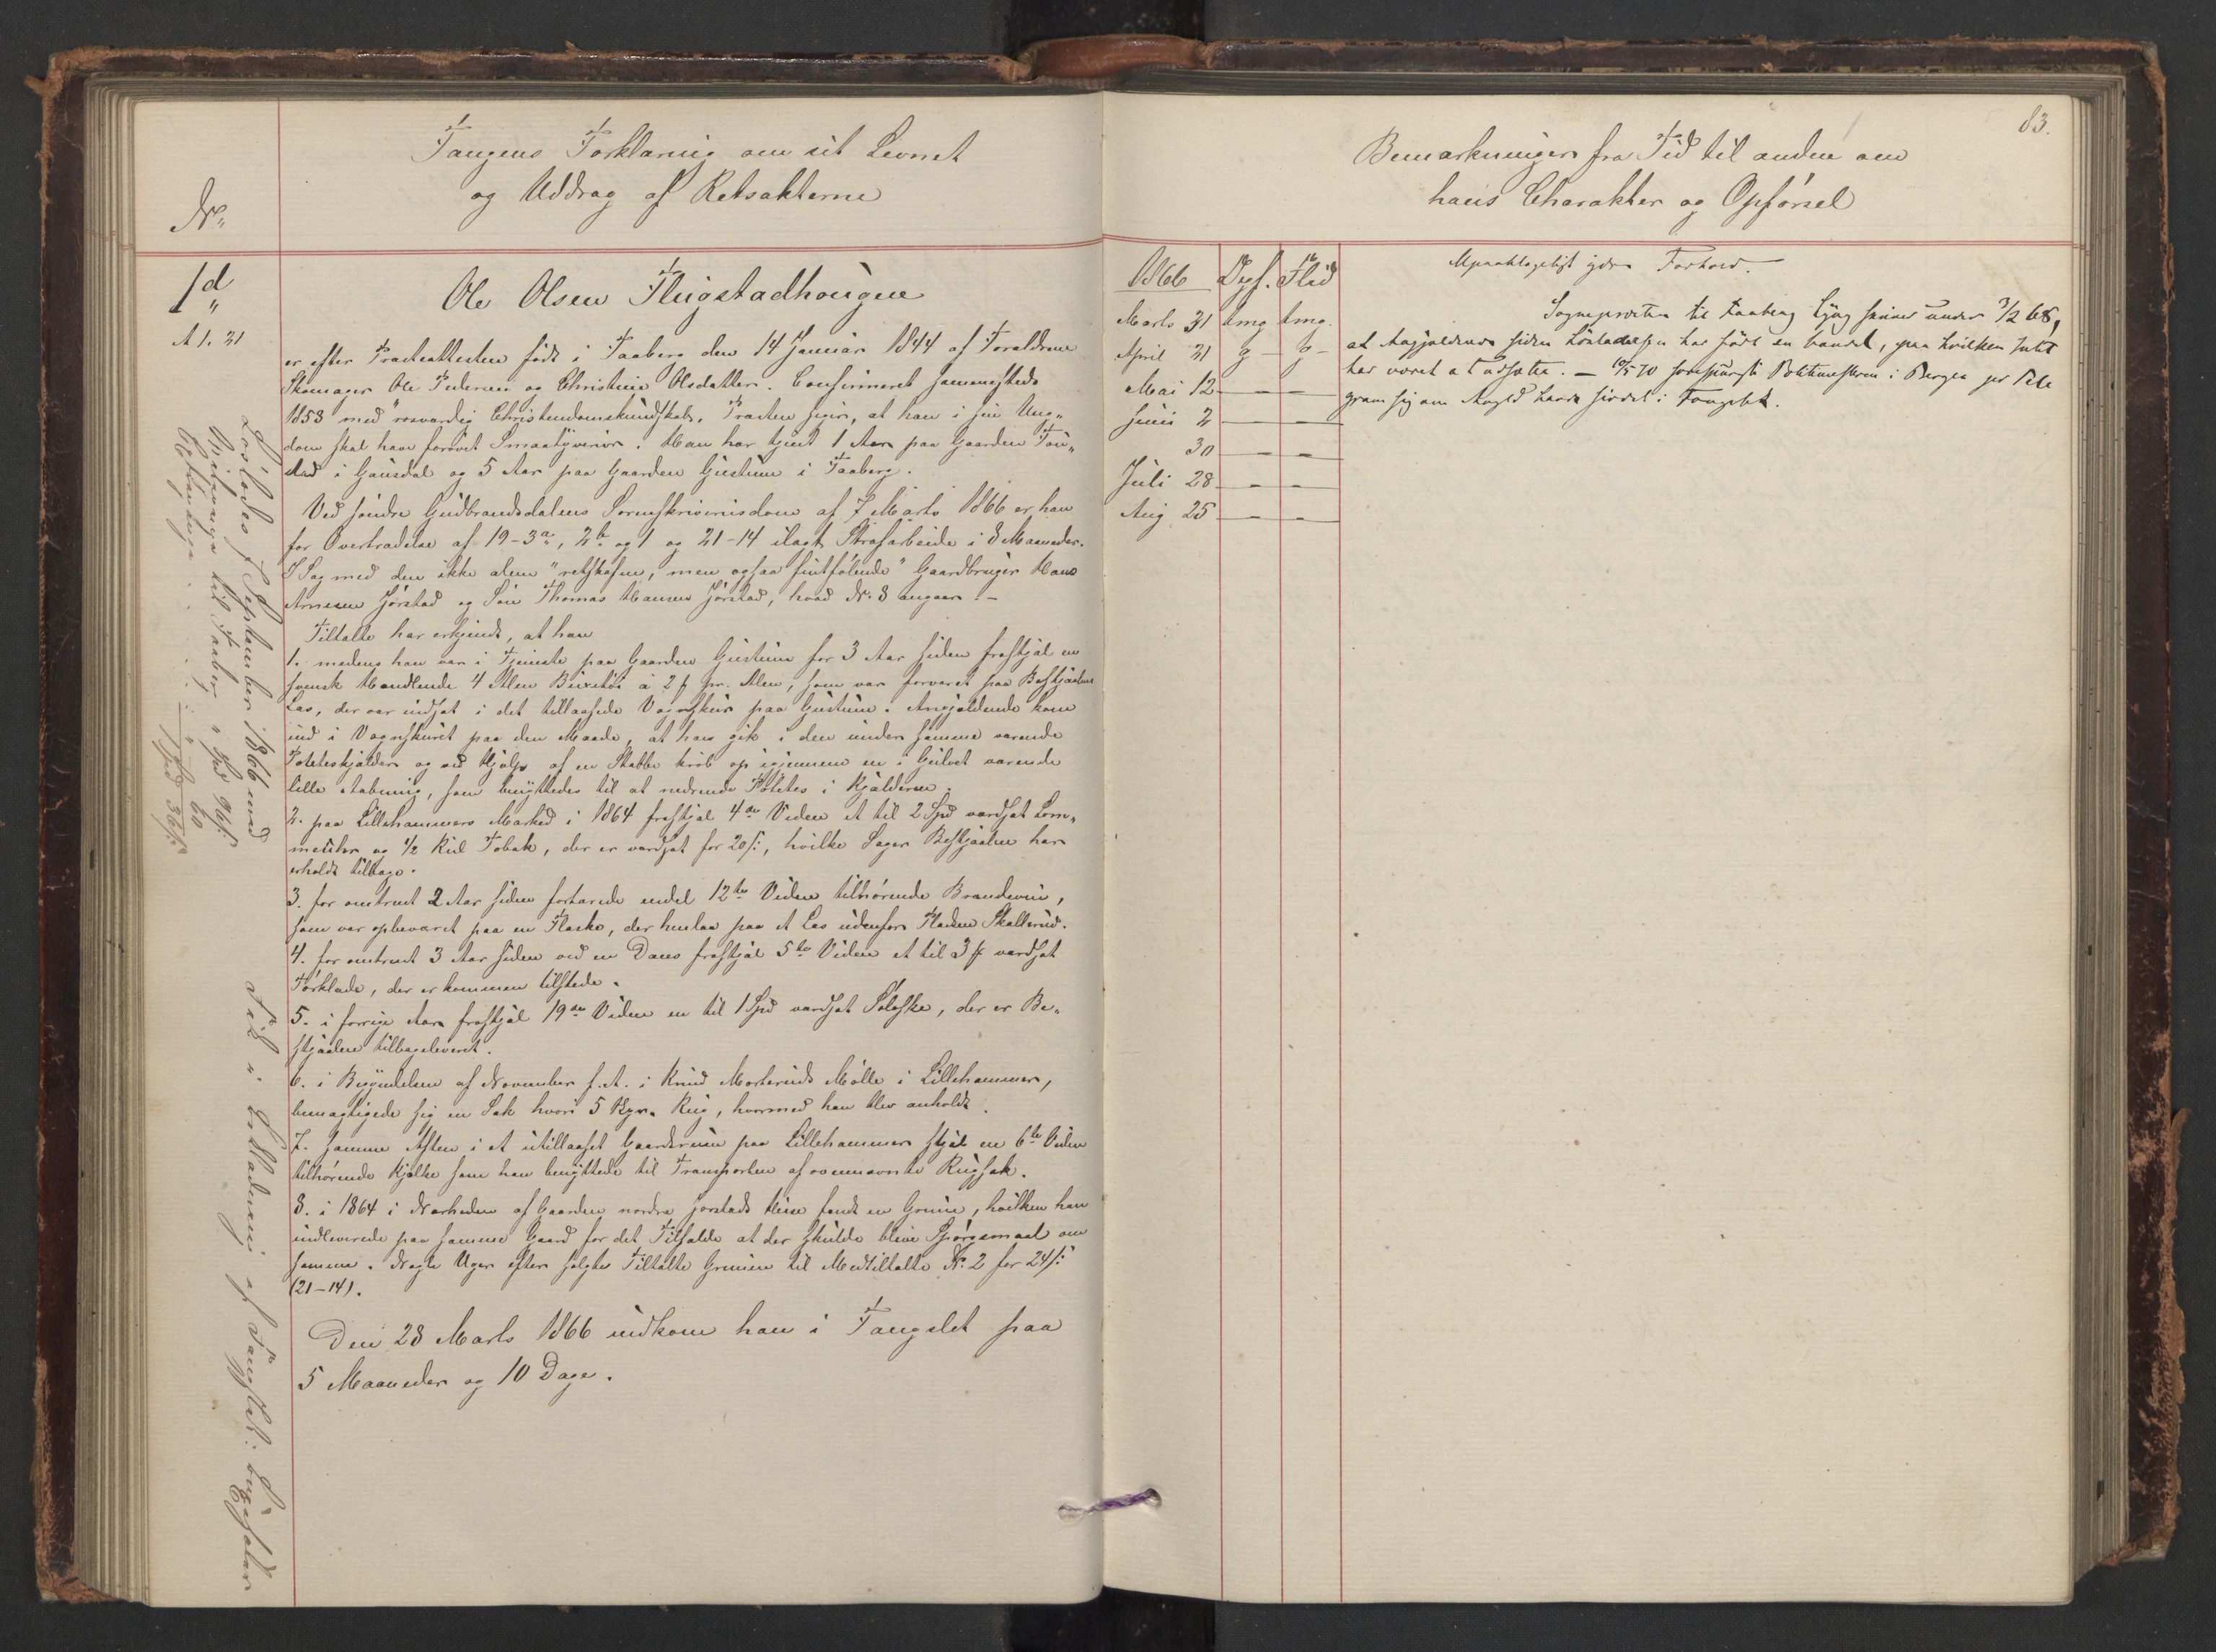 Fangens Forklaring om sit Levnet
og Uddrag af Retsakterne
No
1d
A 1. 21
Ole Olsen Flugstadhougen
er efter Præsteattesten født i Faaberg den 14 Januar 1844 af Forældrene
Skomager Ole Pedersen og Christine Olsdatter. Confirmeret sammesteds
1858 med "nsvardig Christendomskundskab. Præsten siger, at han i sin Ung-
dom skal have forøvet Smaatyverier. Han har tjent 1 Aar paa Gaarden
stad i Gausdal og 5 Aar paa Gaarden Gustum i Faaberg.
Ved søndre Gudbrandsdalens Sorenskriverisdom af 7 Marts 1866 er han
for Overtrædelse af 19-3a, 2b og 1 og 21-14 ilagt Strafarbeide i 8 Maaneder.
I Sag med den ikke alene "retskafne, men ogsaa fintfølende" Gaardbruger Hans
Arnesen Jørstad og Søn Thomas Hansen Jørstad, hvad No. 8 angaar. -
Tiltalte har erkjendt, at han
1. medens han var i Tjeneste paa Gaarden Gustum for 3 Aar siden frastjal en
svensk Handlende 4 Alen Buxetøi à 2 pr. Alen, som var forvaret paa Bestjaalnes
Læs, der var indsat i det tillaasede Vognskur paa Gustum. Angjældende kom
ind i Vognskuret paa den Maade, at han gik i den under samme værende
Poteteskjælder og ved Hjælp af en Stabbe krøb op igjennem en i Gulvet værende
lille Aabning, som benyttedes til at nedrende Potetes i Kjælderen.
2. paa Lillehammers Marked i 1864 frastjal 4de Vidne et til 2 Spd værdsat Lom-
meuhr og 1/2 Rul Tobak, der er værdsat for 20 s, hvilke Sager Bestjaalne har
erholdt tilbage.
3. for omtrent 2 Aar siden fortærede endel 12te Vidne tilhørende Brændeviin,
som var opbevaret paa en Flaske, der henlaa paa et Læs udenfor Pladsen Skallerud.
4. for omtrent 3 Aar siden ved en Dans frastjal 5te Vidne et til 3 værdsat
Tørklæde, der er kommen tilstede.
5. i forrige Aar frastjal 19de Vidne en til 1 Spd værdsat Søløske, der er Be-
stjaalne tilbageleveret.
6. i Begyndelsen af November f. A. i Knud Morteruds Mølle i Lillehammer,
bemægtigede sig en Sæk hvori 5 Rug, hvormed han blev anholdt.
7. samme Aften i et utillaaset Gaardsrum paa Lillehammer stjal en 6te Vidne
tilhørende Kjælke som han benyttede til Transporten af ovennævnte Rugsæk.
8. i 1864 i Nærheden af Gaarden nordre Jørstads Huse fandt en Grime, hvilken han
indleverede paa samme Gaard for det Tilfælde at der skulde blive Spørgsmaal om
samme. Nogle Uger efter solgte Tiltalte Grimen til Medtiltalte No. 2 for 24 s
(21-14).
Den 28 Marts 1866 indkom han i Fængslet paa
5 Maaneder og 10 Dage.
Løslades 7 September 1866 med
Reisepenge til Faaberg " Spd 96 s
60
1 Spd 36 s
Fik i Beklædning af Fængslet:
83.
Bemærkninger fra Tid til anden om
hans Charakter og Opførsel
1866 Opf. Flid
Marts 31 tmg tmg.
April 21 g - g -
Mai 12 - -
Juni 2 - -
30 - -
Juli 28 - -
Aug 25 - -
Upaaklageligt ydre Forhold.
Sognepræsten til Faaberg under 3/2 68,
at Angjældende siden Løsladelsen har ført en Vandel, paa hvilken Intet
har været at udsætte. - 10/5 70 forespurgte Politimesteren i Bergen pr Tele
gram sig om Angjd havde siddet i Fængslet.